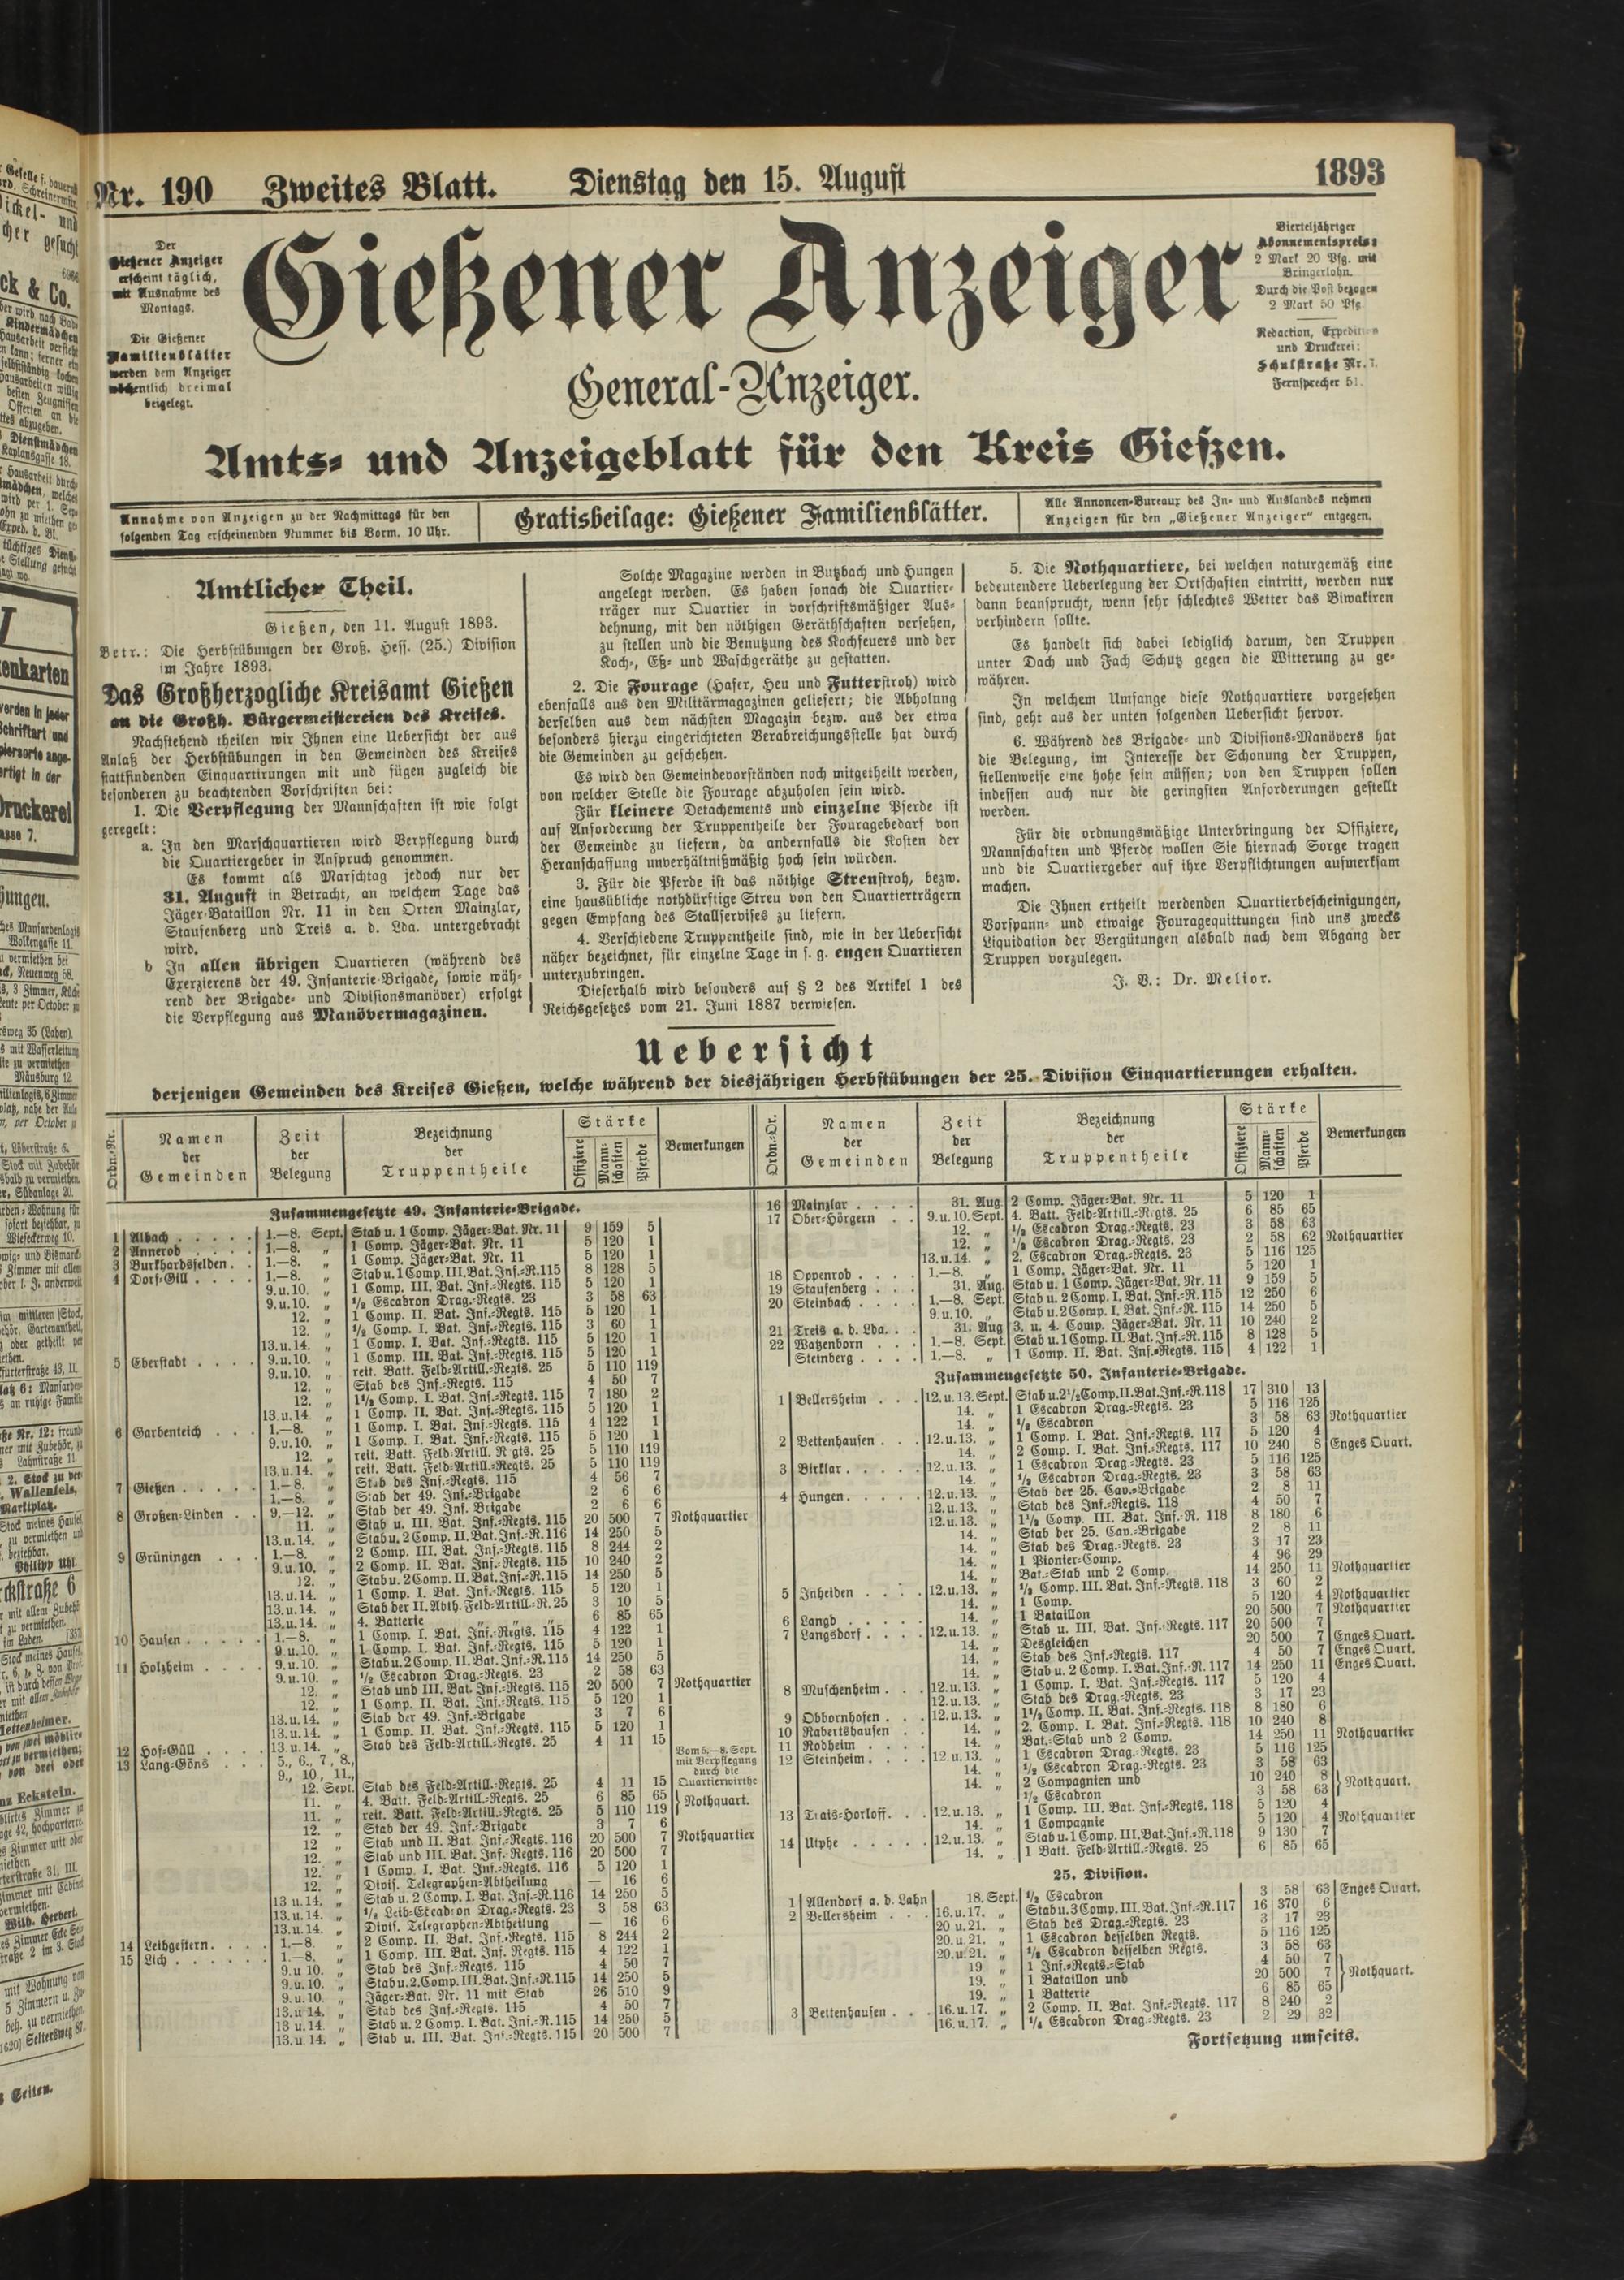 Nr. 190 Zweites Blatt. Dienstag den 15. August 1893
Der
Gießener Anzeiger
erscheint täglich,
mit Ausnahme des
Montags.
Die Gießener
Familienblätter
werden dem Anzeiger
wöchentlich dreimal
beigelegt.
Gießener Anzeiger
General-Anzeiger.
Vierteljähriger
Abonnementspreis:
2 Mark 20 Pfg. mit
Bringerlohn.
Durch die Post bezogen
2 Mark 50 Pfg.
Redaction, Expedition
und Druckerei:
Schulstraße Nr. 7.
Fernsprecher 51.
Amts- und Anzeigeblatt für den Kreis Gießen.
Annahme von Anzeigen zu der Nachmittags für den
folgenden Tag erscheinenden Nummer bis Vorm. 10 Uhr.
Gratisbeilage: Gießener Familienblätter.
Alle Annoncen-Bureaux des In- und Auslandes nehmen
Anzeigen für den „Gießener Anzeiger“ entgegen.
Amtlicher Theil.
Gießen, den 11. August 1893.
Betr.: Die Herbstübungen der Groß. Hess. (25.) Division
im Jahre 1893.
Das Großherzogliche Kreisamt Gießen
an die Großh. Bürgermeistereien des Kreises.
Nachstehend theilen wir Ihnen eine Uebersicht der aus
Anlaß der Herbstübungen in den Gemeinden des Kreises
stattfindenden Einquartirungen mit und fügen zugleich die
besonderen zu beachtenden Vorschriften bei:
1. Die Verpflegung der Mannschaften ist wie folgt
geregelt:
a. In den Marschquartieren wird Verpflegung durch
die Quartiergeber in Anspruch genommen.
Es kommt als Marschtag jedoch nur der
31. August in Betracht, an welchem Tage das
Jäger-Bataillon Nr. 11 in den Orten Mainzlar,
Staufenberg und Treis a. d. Lda. untergebracht
wird.
b In allen übrigen Quartieren (während des
Exerzierens der 49. Infanterie-Brigade, sowie wäh-
rend der Brigade- und Divisionsmanöver) erfolgt
die Verpflegung aus Manövermagazinen.
Solche Magazine werden in Butzbach und Hungen
angelegt werden. Es haben sonach die Quartier-
träger nur Quartier in vorschriftsmäßiger Aus-
dehnung, mit den nöthigen Geräthschaften versehen,
zu stellen und die Benutzung des Kochfeuers und der
Koch-, Eß- und Waschgeräthe zu gestatten.
2. Die Fourage (Hafer, Heu und Futterstroh) wird
ebenfalls aus den Militärmagazinen geliefert; die Abholung
derselben aus dem nächsten Magazin bezw. aus der etwa
besonders hierzu eingerichteten Verabreichungsstelle hat durch
die Gemeinden zu geschehen.
Es wird den Gemeindevorständen noch mitgetheilt werden,
von welcher Stelle die Fourage abzuholen sein wird.
Für kleinere Detachements und einzelne Pferde ist
auf Anforderung der Truppentheile der Fouragebedarf von
der Gemeinde zu liefern, da andernfalls die Kosten der
Heranschaffung unverhältnißmäßig hoch sein würden.
3. Für die Pferde ist das nöthige Strenstroh, bezw.
eine hausübliche nothdürftige Streu von den Quartierträgern
gegen Empfang des Stallservises zu liefern.
4. Verschiedene Truppentheile sind, wie in der Uebersicht
näher bezeichnet, für einzelne Tage in s. g. engen Quartieren
unterzubringen.
Dieserhalb wird besonders auf § 2 des Artikel 1 des
Reichsgesetzes vom 21. Juni 1887 verwiesen.
5. Die Nothquartiere, bei welchen naturgemäß eine
bedeutendere Ueberlegung der Ortschaften eintritt, werden nur
dann beansprucht, wenn sehr schlechtes Wetter das Biwakiren
verhindern sollte.
Es handelt sich dabei lediglich darum, den Truppen
unter Dach und Fach Schutz gegen die Witterung zu ge-
währen.
In welchem Umfange diese Nothquartiere vorgesehen
sind, geht aus der unten folgenden Uebersicht hervor.
6. Während des Brigade- und Divisions-Manövers hat
die Belegung, im Interesse der Schonung der Truppen,
stellenweise eine hohe sein müssen; von den Truppen sollen
indessen auch nur die geringsten Anforderungen gestellt
werden.
Für die ordnungsmäßige Unterbringung der Offiziere,
Mannschaften und Pferde wollen Sie hiernach Sorge tragen
und die Quartiergeber auf ihre Verpflichtungen aufmerksam
machen.
Die Ihnen ertheilt werdenden Quartierbescheinigungen,
Vorspann- und etwaige Fouragequittungen sind uns zwecks
Liquidation der Vergütungen alsbald nach dem Abgang der
Truppen vorzulegen.
J. V.: Dr. Melior.
Uebersicht
derjenigen Gemeinden des Kreises Gießen, welche während der diesjährigen Herbstübungen der 25. Division Einquartierungen erhalten.
Ordn.-Nr. Namen der Gemeinden Zeit der Belegung Bezeichnung der Truppentheile Stärke Offiziere Mannschaften Pferde Bemerkungen
Zusammengesetzte 49. Infanterie-Brigade.
1 Albach 1.—8. Sept. Stab u. 1 Comp. Jäger-Bat. Nr. 11 9 159 5
2 Annerod 1.—8. „ 1 Comp. Jäger-Bat. Nr. 11 5 120 1
3 Burkhardsfelden 1.—8. „ 1 Comp. Jäger-Bat. Nr. 11 5 120 1
4 Dorf-Gill 1.—8. „ Stab u. 1 Comp. III. Bat. Inf.-R. 115 8 128 5
9. u. 10. „ 1 Comp. III. Bat. Inf.-Regts. 115 5 120 1
9. u. 10. „ 1/2 Escadron Drag.-Regts. 23 3 58 63
12. „ 1 Comp. II. Bat. Inf.-Regts. 115 5 120 1
12. „ 1/2 Comp. I. Bat. Inf.-Regts. 115 3 60 1
13. u. 14. „ 1 Comp. I. Bat. Inf.-Regts. 115 5 120 1
5 Eberstadt 9. u. 10. „ 1 Comp. III. Bat. Inf.-Regts. 115 5 120 1
9. u. 10. „ reit. Batt. Feld-Artill.-Regts. 25 5 110 119
12. „ Stab des Inf.-Regts. 115 4 50 7
12. „ 1 1/2 Comp. I. Bat. Inf.-Regts. 115 7 180 2
13. u. 14. „ 1 Comp. II. Bat. Inf.-Regts. 115 5 120 1
6 Garbenteich 1.—8. „ 1 Comp. I. Bat. Inf.-Regts. 115 4 122 1
9. u. 10. „ 1 Comp. I. Bat. Inf.-Regts. 115 5 120 1
12. „ reit. Batt. Feld-Artill. R gts. 25 5 110 119
13. u. 14. „ reit. Batt. Feld-Artill.-Regts. 25 5 110 119
7 Gießen 1.—8. „ Stab des Inf.-Regts. 115 4 56 7
1.—8. „ Stab der 49. Inf.-Brigade 2 6 6
8 Großen-Linden 9.—12. „ Stab der 49. Inf. Brigade 2 6 6
11. „ Stab u. III. Bat. Inf.-Regts. 115 20 500 7 Nothquartier
13. u. 14. „ Stab u. 2 Comp. II. Bat. Inf.-R. 116 14 250 5
9 Grüningen 1.—8. „ 2 Comp. III. Bat. Inf.-Regts. 115 8 244 2
9. u. 10. „ 2 Comp. II. Bat. Inf.-Regts. 115 10 240 2
12. „ Stab u. 2 Comp. II. Bat. Inf.-R. 115 14 250 5
13. u. 14. „ 1 Comp. I. Bat. Inf.-Regts. 115 5 120 1
13. u. 14. „ Stab der II. Abth. Feld-Artill.-R. 25 3 10 5
13. u. 14. „ 4. Batterie „ „ „ 6 85 65
10 Hausen 1.—8. „ 1 Comp. I. Bat. Inf.-Regts. 115 4 122 1
9. u. 10. „ 1 Comp. I. Bat. Inf.-Regts. 115 5 120 1
11 Holzheim 9. u. 10. „ Stab u. 2 Comp. II. Bat. Inf.-R. 115 14 250 5
9. u. 10. „ 1/2 Escadron Drag.-Regts. 23 2 58 63
12. „ Stab und III. Bat. Inf.-Regts. 115 20 500 7 Nothquartier
12. „ 1 Comp. II. Bat. Inf.-Regts. 115 5 120 1
13. u. 14. „ Stab der 49. Inf.-Brigade 3 7 6
13. u. 14. „ 1 Comp. II. Bat. Inf.-Regts. 115 5 120 1
12 Hof-Güll 13. u. 14. „ Stab des Feld-Artill.-Regts. 25 4 11 15
13 Lang-Göns 5., 6., 7., 8.,
9., 10., 11.,
12. Sept. Stab des Feld-Artill.-Regts. 25 4 11 15 Vom 5.—8. Sept. mit Verpflegung durch die Quartierwirthe
11. „ 4. Batt. Feld-Artill.-Regts. 25 6 85 65 Nothquart.
11. „ reit. Batt. Feld-Artill.-Regts. 25 5 110 119
12. „ Stab der 49. Inf.-Brigade 3 7 6
12 „ Stab und II. Bat. Inf.-Regts. 116 20 500 7 Nothquartier
12. „ Stab und III. Bat. Inf.-Regts. 116 20 500 7
12. „ 1 Comp. I. Bat. Inf.-Regts. 116 5 120 1
12. „ Divis. Telegraphen-Abtheilung — 16 6
13 u. 14. „ Stab u. 2 Comp. I. Bat. Inf.-R. 116 14 250 5
13. u. 14. „ 1/2 Leib-Escadron Drag.-Regts. 23 3 58 63
13. u. 14. „ Divis. Telegraphen-Abtheilung — 16 6
14 Leihgestern 1.—8. „ 2 Comp. II. Bat. Inf.-Regts. 115 8 244 2
15 Lich 1.—8. „ 1 Comp. III. Bat. Inf.-Regts. 115 4 122 1
9. u 10. „ Stab des Inf.-Regts. 115 4 50 7
9. u. 10. „ Stab u. 2. Comp. III. Bat. Inf.-R. 115 14 250 5
9. u. 10. „ Jäger-Bat. Nr. 11 mit Stab 26 510 9
13. u 14. „ Stab des Inf.-Regts. 115 4 50 7
13 u. 14. „ Stab u. 2 Comp. I. Bat. Inf.-R. 115 14 250 5
13. u. 14. „ Stab u. III. Bat. Inf.-Regts. 115 20 500 7
Ordn.-Nr. Namen der Gemeinden Zeit der Belegung Bezeichnung der Truppentheile Stärke Offiziere Mannschaften Pferde Bemerkungen
16 Mainzlar 31. Aug. 2 Comp. Jäger-Bat. Nr. 11 5 120 1
17 Ober-Hörgern 9. u. 10. Sept. 4. Batt. Feld-Artill.-Regts. 25 6 85 65
12. „ 1/2 Escadron Drag.-Regts. 23 3 58 63
12. „ 1/2 Escadron Drag.-Regts. 23 2 58 62 Nothquartier
13. u. 14. „ 2. Escadron Drag.-Regts. 23 5 116 125
18 Oppenrod 1.—8. „ 1 Comp. Jäger-Bat. Nr. 11 5 120 1
19 Staufenberg 31. Aug. Stab u. 1 Comp. Jäger-Bat. Nr. 11 9 159 5
20 Steinbach 1.—8. Sept. Stab u. 2 Comp. I. Bat. Inf.-R. 115 12 250 6
9. u. 10. „ Stab u. 2 Comp. I. Bat. Inf.-R. 115 14 250 5
21 Treis a. d. Lda. 31. Aug 3. u. 4. Comp. Jäger-Bat. Nr. 11 10 240 2
22 Watzenborn 1.—8. Sept. Stab u. 1 Comp. II. Bat. Inf.-R. 115 8 128 5
Steinberg 1.—8. „ 1 Comp. II. Bat. Inf.-Regts. 115 4 122 1
Zusammengesetzte 50. Infanterie-Brigade.
1 Bellersheim 12. u. 13. Sept. Stab u. 2 1/2 Comp. II. Bat. Inf.-R. 118 17 310 13
14. „ 1 Escadron Drag.-Regts. 23 5 116 125
14. „ 1/2 Escadron 3 58 63 Nothquartier
2 Bettenhausen 12. u. 13. „ 1 Comp. I. Bat. Inf.-Regts. 117 5 120 4
14. „ 2 Comp. I. Bat. Inf.-Regts. 117 10 240 8 Enges Quart.
3 Birklar 12. u. 13. „ 1 Escadron Drag.-Regts. 23 5 116 125
14. „ 1/2 Escadron Drag.-Regts. 23 3 58 63
4 Hungen 12. u. 13. „ Stab der 25. Cav.-Brigade 2 8 11
12. u. 13. „ Stab des Inf.-Regts. 118 4 50 7
12. u. 13. „ 1 1/2 Comp. III. Bat. Inf.-R. 118 8 180 6
14. „ Stab der 25. Cav.-Brigade 2 8 11
14. „ Stab des Drag.-Regts. 23 3 17 23
14. „ 1 Pionier-Comp. 4 96 29
14. „ Bat.-Stab und 2 Comp. 14 250 11 Nothquartier
5 Inheiden 12. u. 13. „ 1/2 Comp. III. Bat. Inf.-Regts. 118 3 60 2
14. „ 1 Comp. 5 120 4 Nothquartier
6 Langd 14. „ 1 Bataillon 20 500 7 Nothquartier
7 Langsdorf 12. u. 13. „ Stab u. III. Bat. Inf.-Regts. 117 20 500 7
14. „ Desgleichen 20 500 7 Enges Quart.
14. „ Stab des Inf.-Regts. 117 4 50 7 Enges Quart.
14. „ Stab u. 2 Comp. I. Bat. Inf.-R. 117 14 250 11 Enges Quart.
8 Muschenheim 12. u. 13. „ 1 Comp. I. Bat. Inf.-Regts. 117 5 120 4
12. u. 13. „ Stab des Drag.-Regts. 23 3 17 23
9 Obbornhofen 12. u. 13. „ 1 1/2 Comp. II. Bat. Inf.-Regts. 118 8 180 6
10 Rabertshausen 14. „ 2. Comp. I. Bat. Inf.-Regts. 118 10 240 8
11 Rodheim 14. „ Bat.-Stab und 2 Comp. 14 250 11 Nothquartier
12 Steinheim 12. u. 13. „ 1 Escadron Drag.-Regts. 23 5 116 125
14. „ 1/2 Escadron Drag.-Regts. 23 3 58 63
14. „ 2 Compagnien und 10 240 8 Nothquart.
1/2 Escadron 3 58 63
13 Trais-Horloff 12. u. 13. „ 1 Comp. III. Bat. Inf.-Regts. 118 5 120 4
14. „ 1 Compagnie 5 120 4 Nothquartier
14 Utphe 12. u. 13. „ Stab u. 1 Comp. III. Bat. Inf.-R. 118 9 130 7
14. „ 1 Batt. Feld-Artill.-Regts. 25 6 85 65
25. Division.
1 Allendorf a. d. Lahn 18. Sept. 1/2 Escadron 3 58 63 Enges Quart.
2 Bellersheim 16. u. 17. „ Stab u. 3 Comp. III. Bat. Inf.-R. 117 16 370 6
20 u. 21. „ Stab des Drag.-Regts. 23 3 17 23
20. u. 21. „ 1 Escadron desselben Regts. 5 116 125
20. u. 21. „ 1/2 Escadron desselben Regts. 3 58 63
19 „ 1 Inf.-Regts.-Stab 4 50 7
19. „ 1 Bataillon und 20 500 7 Nothquart.
19. „ 1 Batterie 6 85 65
3 Bettenhausen 16. u. 17. „ 2 Comp. II. Bat. Inf.-Regts. 117 8 240 2
16. u. 17. „ 1/4 Escadron Drag.-Regts. 23 2 29 32
Fortsetzung umseits.